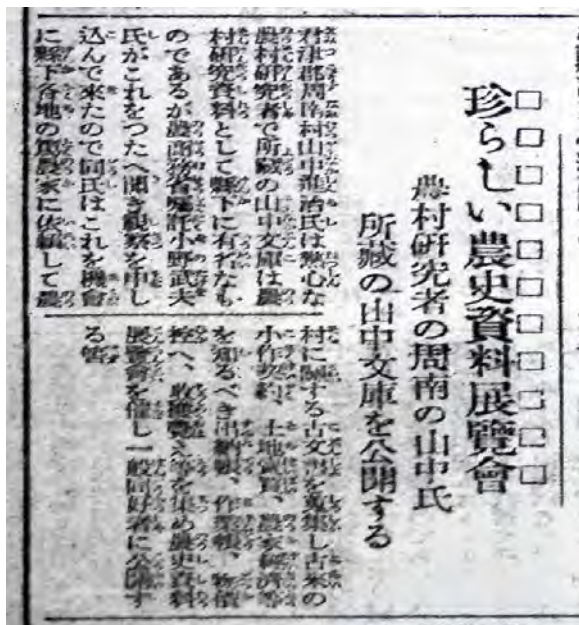 珍らしい農史資料展覽會
農村研究者の周南の山中氏
所藏の山中文庫を公開する
君津郡周南村山中進治氏は熱心な
農村研究者で所藏の山中文庫は農
村研究資料として縣下に有名なも
のであるが農商務省囑託小野武夫
氏がこれをつたへ聞き視察を申し
込んで來たので同氏はこれを機會
に縣下各地の篤農家に依賴して農
村に關する古文書を蒐集し古來の
小作契約、土地賣買、農家經濟等
を知るべき出納帳、作業帳、物價
控へ、收穫覺へ等を集め農史資料
展覽會を催し一般同好者に公開す
る筈